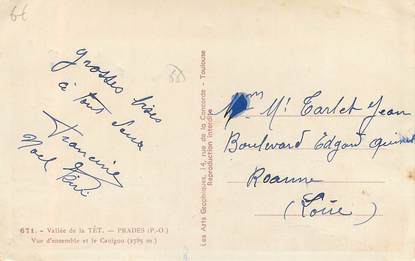 66
grosses bises
à tout deux
Francine
Noël
671. - Vallée de la TÊT. - PRADES (P.-O.)
Vue d'ensemble et le Canigou (2785 m)
Les Arts Graphiques, 14, rue de la Concorde - Toulouse
Reproduction interdite
Mr Tarlet Jean
Boulevard Edgard Quinet
Roanne
(Loire)